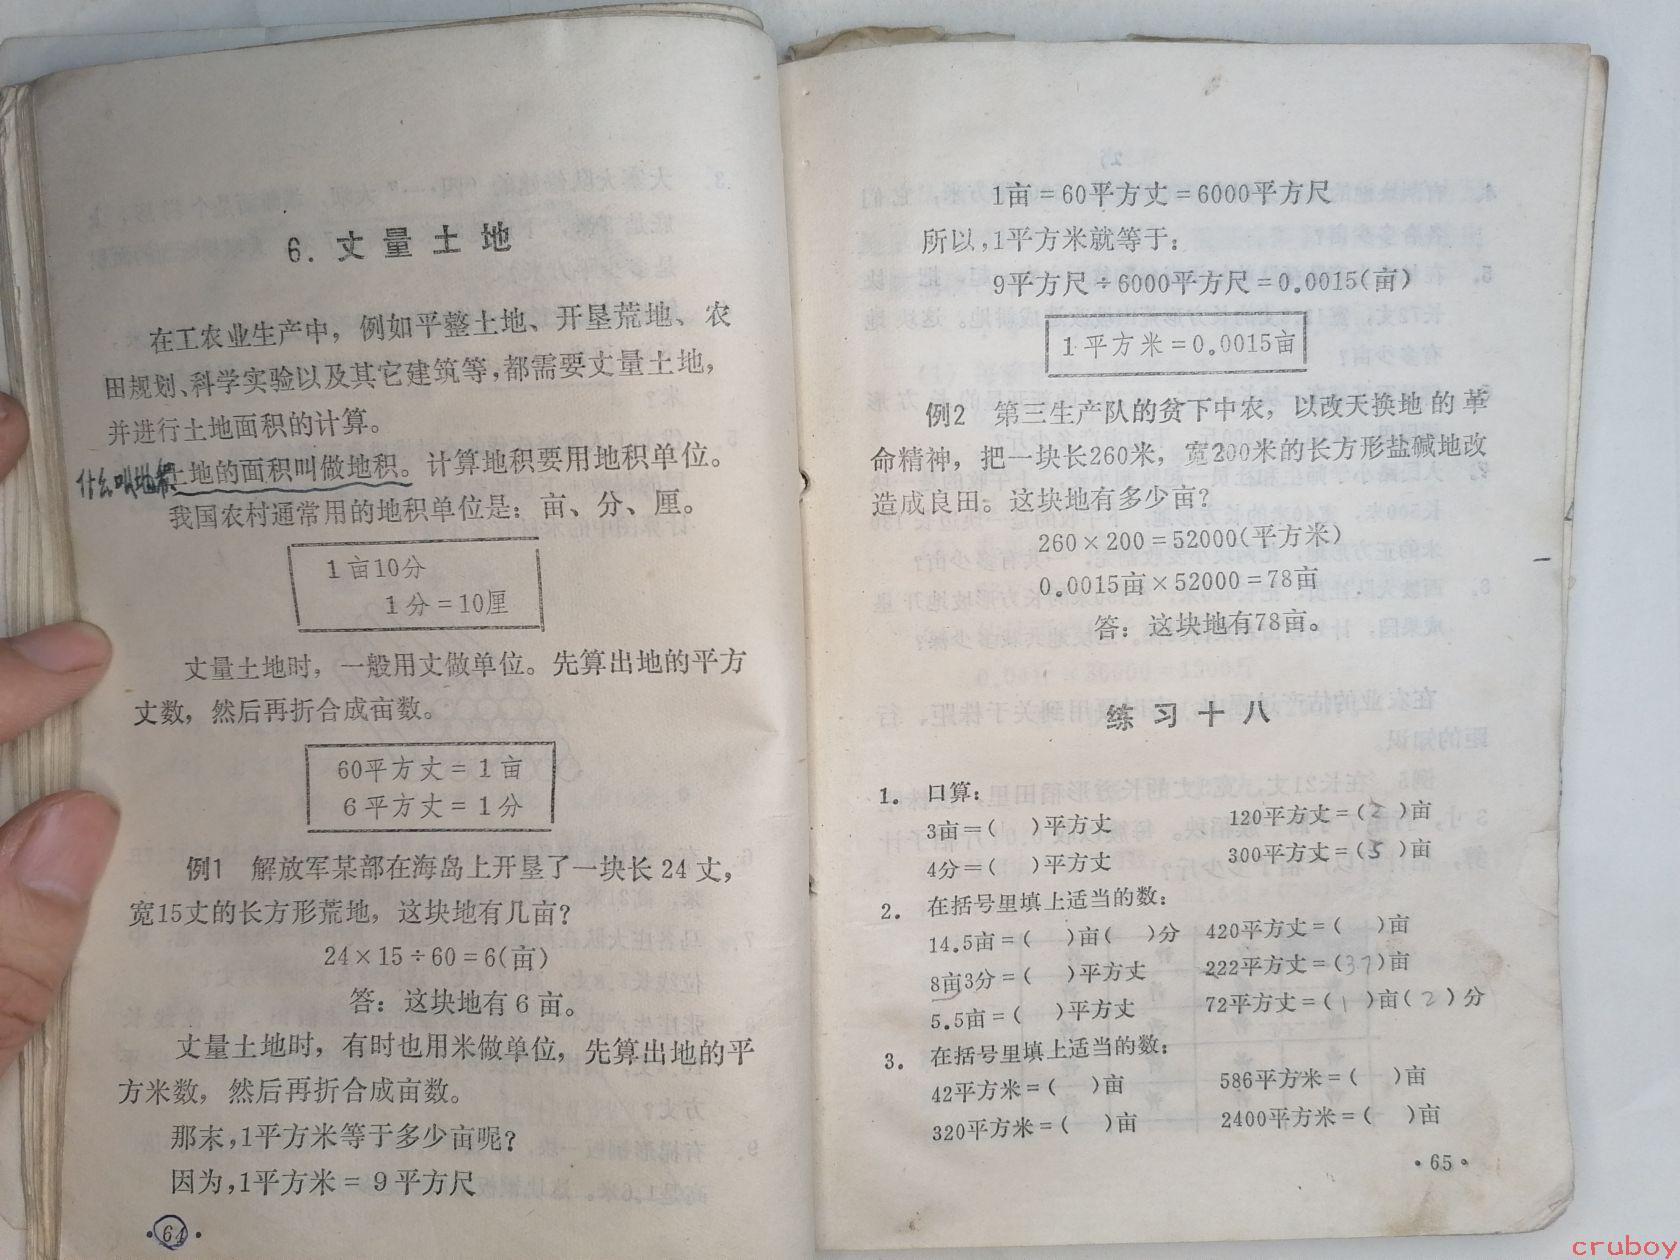 6. 丈量土地
在工农业生产中，例如平整土地、开垦荒地、农
田规划、科学实验以及其它建筑等，都需要丈量土地，
并进行土地面积的计算。
什么叫地积
土地的面积叫做地积。计算地积要用地积单位。
我国农村通常用的地积单位是：亩、分、厘。
1亩10分
1分＝10厘
丈量土地时，一般用丈做单位。先算出地的平方
丈数，然后再折合成亩数。
60平方丈＝1亩
6平方丈＝1分
例1 解放军某部在海岛上开垦了一块长24丈，
宽15丈的长方形荒地，这块地有几亩？
24×15÷60＝6(亩)
答：这块地有6亩。
丈量土地时，有时也用米做单位，先算出地的平
方米数，然后再折合成亩数。
那末，1平方米等于多少亩呢？
因为，1平方米＝9平方尺
·64·
1亩＝60平方丈＝6000平方尺
所以，1平方米就等于：
9平方尺÷6000平方尺＝0.0015(亩)
1平方米＝0.0015亩
例2 第三生产队的贫下中农，以改天换地的革
命精神，把一块长260米，宽200米的长方形盐碱地改
造成良田。这块地有多少亩？
260×200＝52000(平方米)
0.0015亩×52000＝78亩
答：这块地有78亩。
练习十八
1. 口算：
3亩＝( )平方丈 120平方丈＝(2)亩
4分＝( )平方丈 300平方丈＝(5)亩
2. 在括号里填上适当的数：
14.5亩＝( )亩( )分 420平方丈＝( )亩
8亩3分＝( )平方丈 222平方丈＝(37)亩
5.5亩＝( )平方丈 72平方丈＝(1)亩(2)分
3. 在括号里填上适当的数：
42平方米＝( )亩 586平方米＝( )亩
320平方米＝( )亩 2400平方米＝( )亩
·65·
cruboy